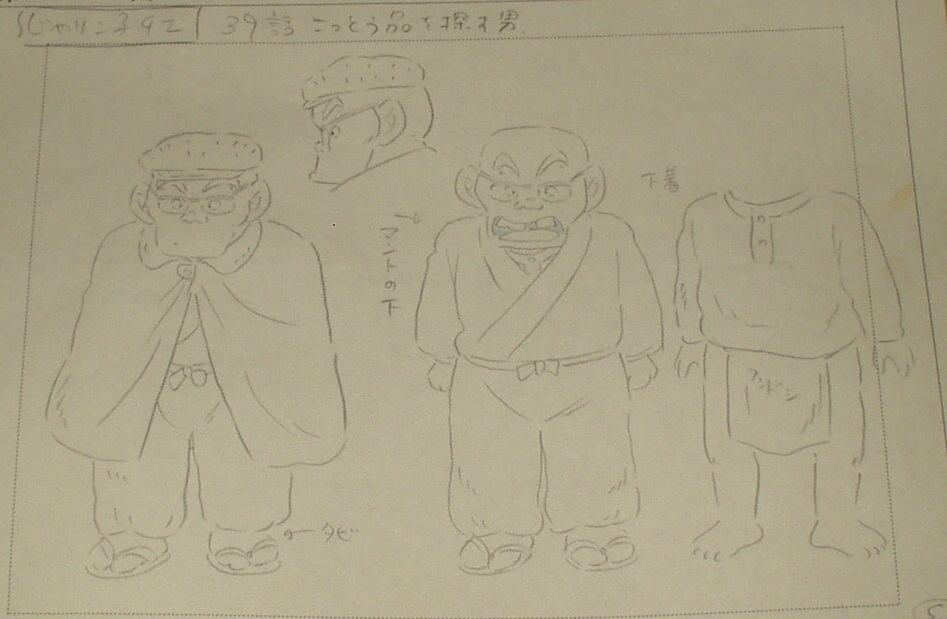 じゃりン子チエ 39話 こっとう品を探す男.
下着
マントの下
フンドーシ
タビ